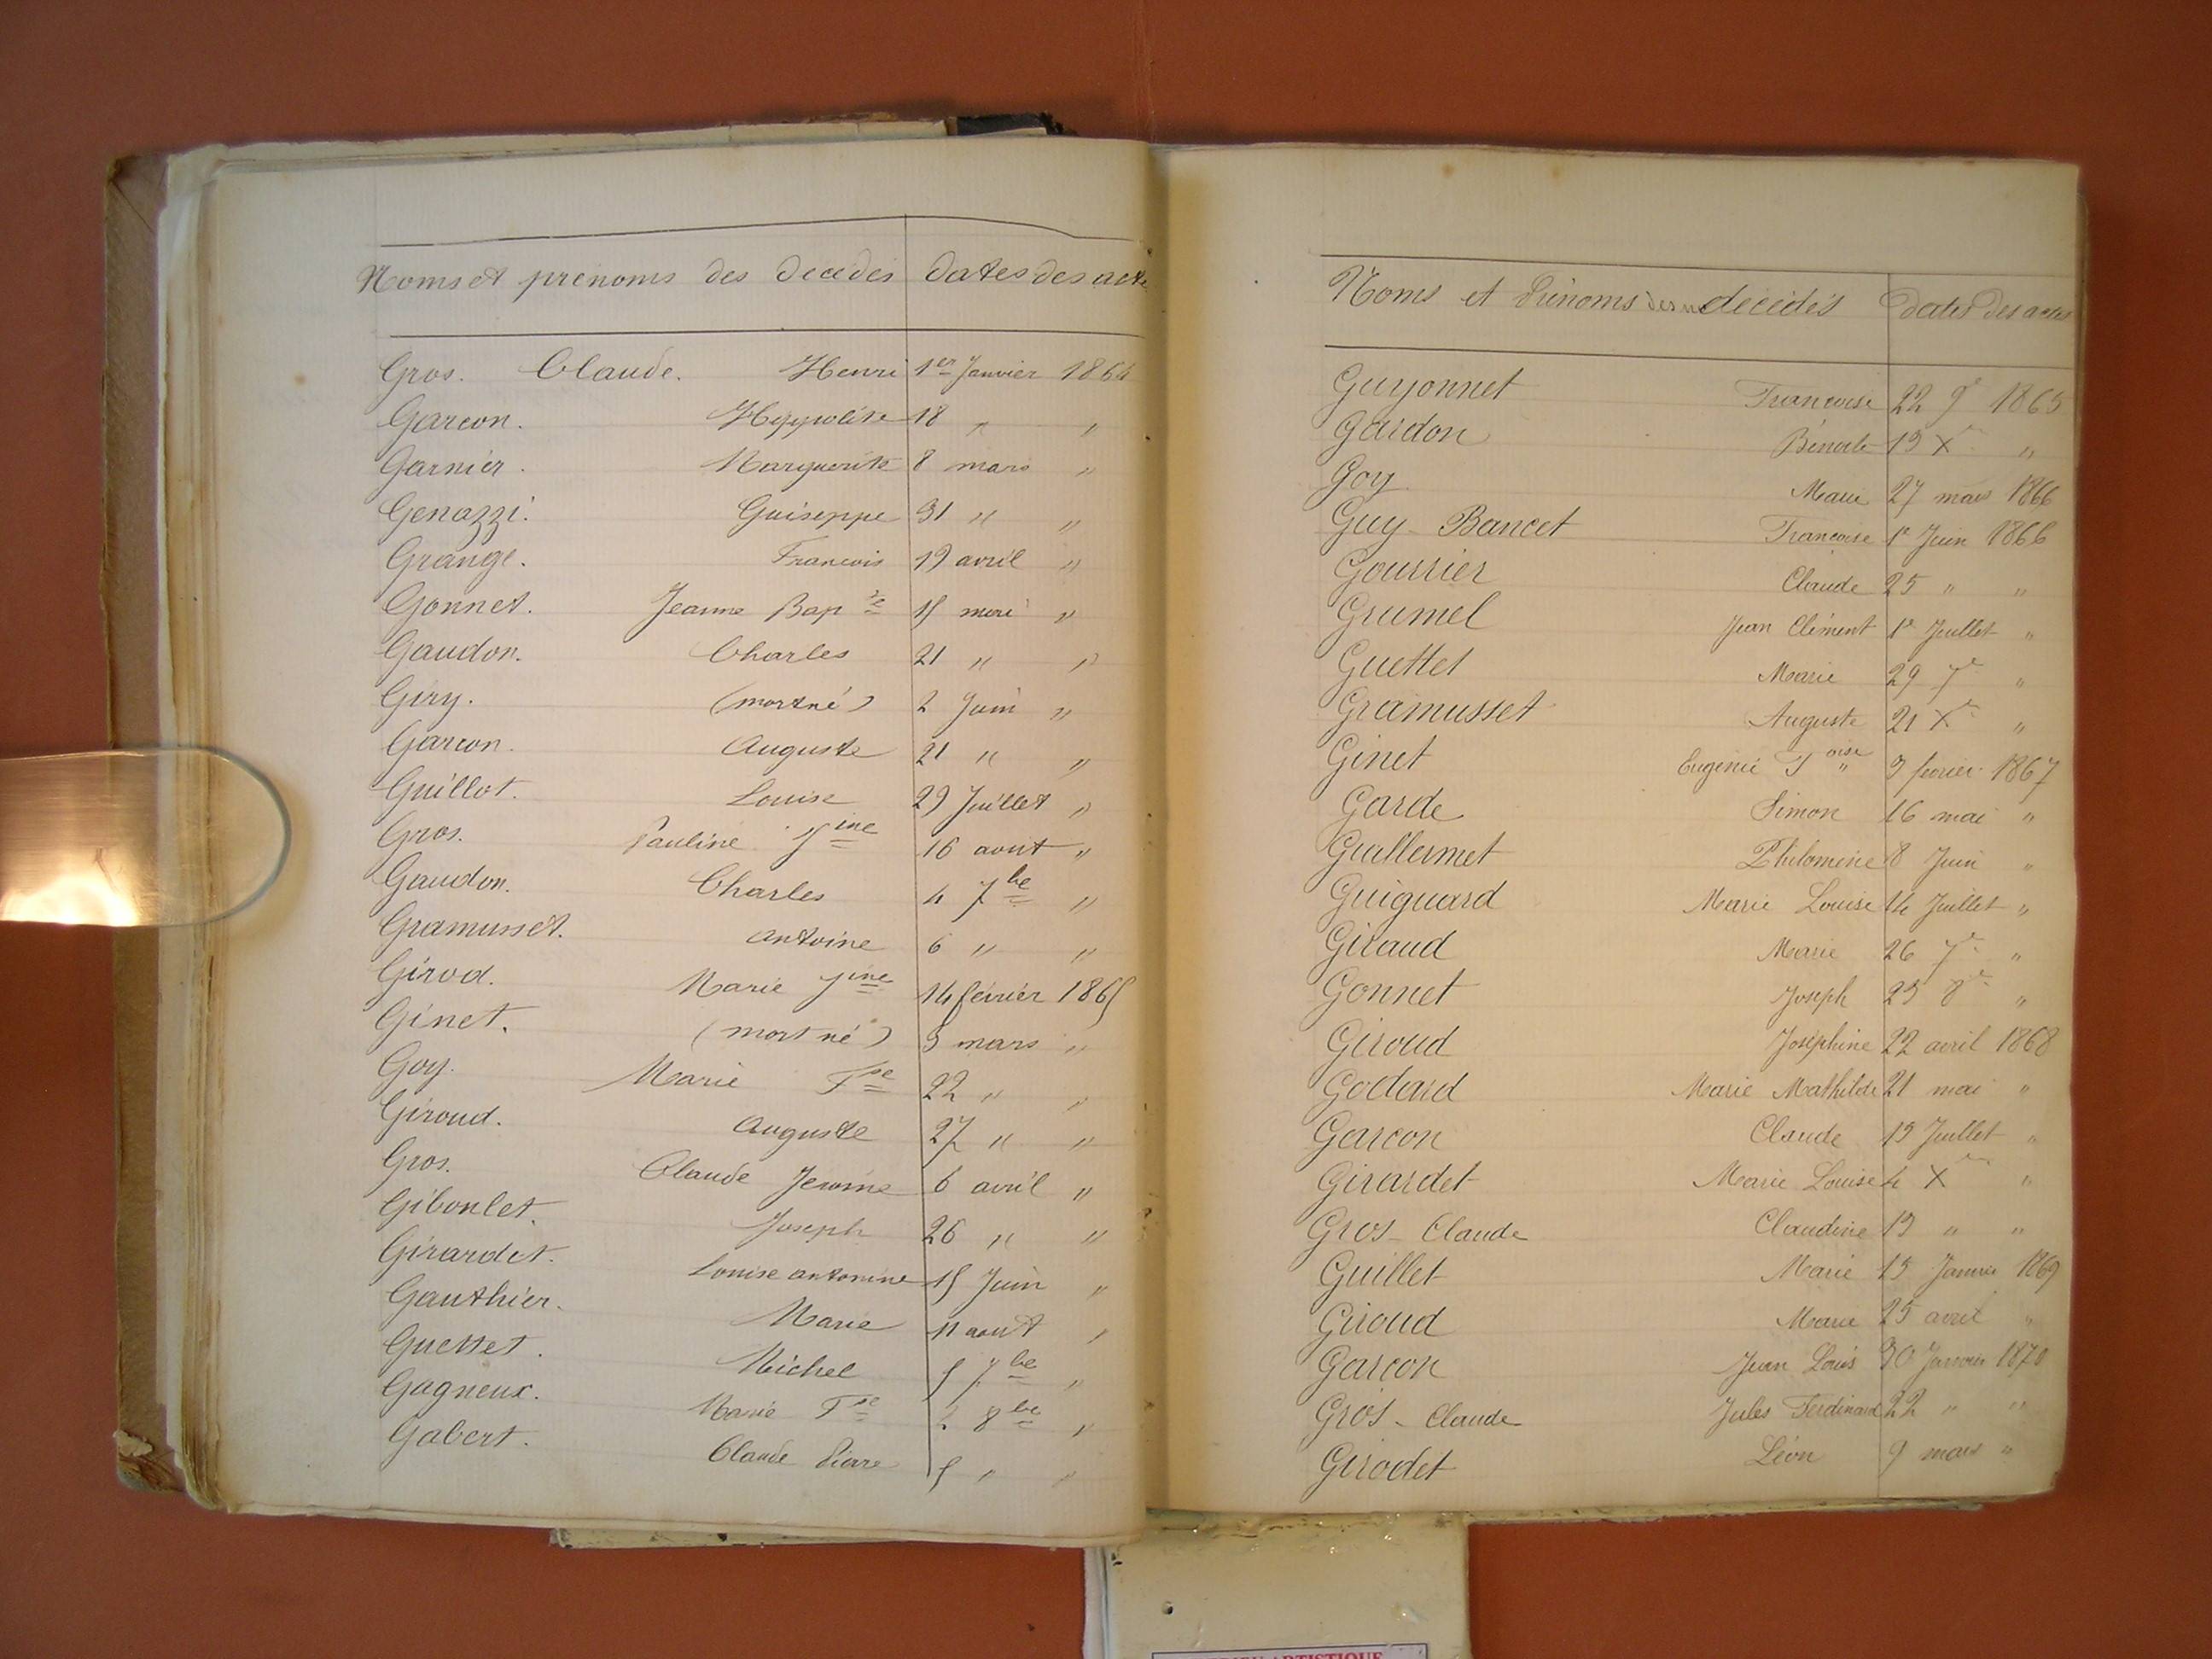 Noms et prenoms des decedés dates des acte
Gros. Claude. Henri 1er Janvier 1864
Garcon. Hyppolite 18 " "
Garnier. Marguerite 8 mars "
Genazzi. Guiseppe 31 " "
Grange. Francois 19 avril "
Gonnet. Jeanne Bapte 15 mai "
Gaudon. Charles 21 " "
Giry. (mortné) 2 Juin "
Garcon. Auguste 21 " "
Guillot. Louise 29 Juillet "
Gros. Pauline Jine 16 aout "
Gaudon. Charles 4 7be "
Gramusset. antoine 6 " "
Girod. Marie Jine 14 février 1865
Ginet. (mort né) 3 mars "
Goy. Marie Fse 22 " "
Giroud. Auguste 27 " "
Gros. Claude Jerome 6 avril "
Giboulet. Joseph 26 " "
Girardet. Louise antonine 15 Juin "
Gauthier. Marie 11 aout "
Guettet. Michel 5 7be "
Gagneux. Marie Fse 2 8be "
Gabert. Claude Pierre 5 " "
Noms et Prénoms des decédés dates des actes
Guyonnet Francoise 22 9e 1865
Gaidon Bénoite 13 Xe "
Goy Marie 27 mars 1866
Guy-Bancet Francoise 1e Juin 1866
Gourrier Claude 25 " "
Grumel Jean Clément 1e Juillet "
Guettet Marie 29 7e "
Gramusset Auguste 21 Xe "
Ginet Eugénie Foise 3 fevrier 1867
Garde Simon 16 mai "
Guillermet Philomène 8 Juin "
Guiguard Marie Louise 14 Juillet "
Giraud Marie 26 7e "
Gonnet Joseph 23 8e "
Giroud Joséphine 22 avril 1868
Godard Marie Mathilde 21 mai "
Garcon Claude 13 Juillet "
Girardet Marie Louise 4 Xe "
Gros-Claude Claudine 13 " "
Guillet Marie 13 Janvier 1869
Giroud Marie 25 avril "
Garcon Jean Louis 30 Janvier 1870
Gros-Claude Jules Ferdinand 22 " "
Girodet Léon 9 mars "
ARTISTIQUE